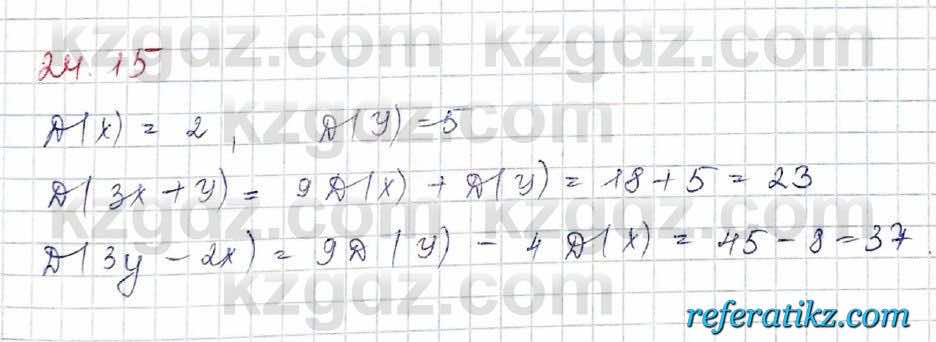 kzgdz.com kzgdz.com
24.15
kzgdz.com
D(x) = 2, D(y) = 5
D(3x + y) = 9D(x) + D(y) = 18 + 5 = 23
kzgdz.com kzgdz.com
D(3y - 2x) = 9D(y) - 4D(x) = 45 - 8 = 37.
kzgdz.com
referatikz.com